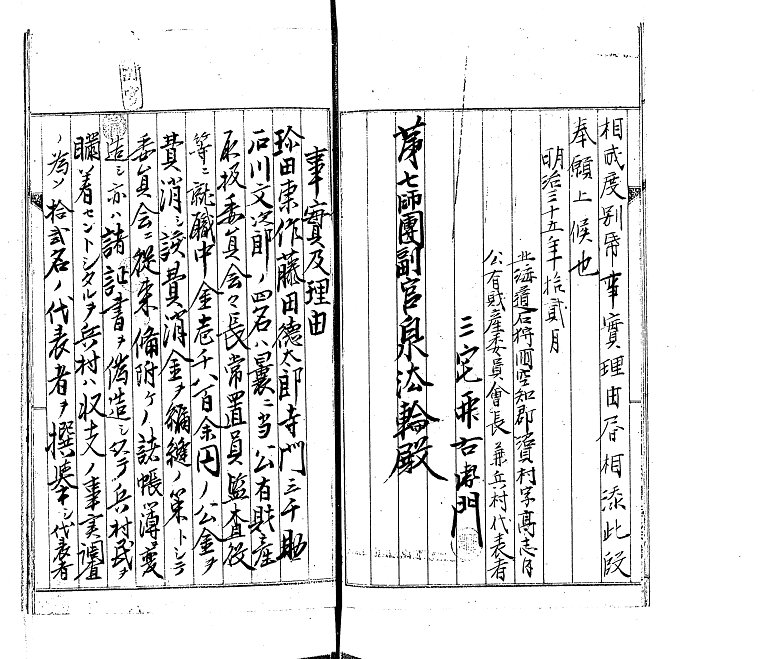 相成度別帋事實理由書相添此段
奉願上候也
明治三十五年拾貳月
北海道石狩國空知郡瀧川村字高志内
公有財産委員會長兼兵村代表者
三宅乗右衛門
第七師團副官泉法輪殿
事實及理由
珍田東作藤田徳太郎寺門三千助
石川文次郎ノ四名ハ曩ニ当公有財産
取扱委員会々長常置員監査役
等ニ就職中金壱千八百余円ノ公金ヲ
費消シ該費消金ヲ彌縫ノ策トシテ
委員会ニ從来備附ケノ諸帳簿変
造シ亦ハ諸証書ヲ偽造シ以テ兵村民ヲ
瞞着セントシタルヲ兵村ハ収支ノ事実調査
ノ為メ拾貳名ノ代表者ヲ撰挙シ代表者